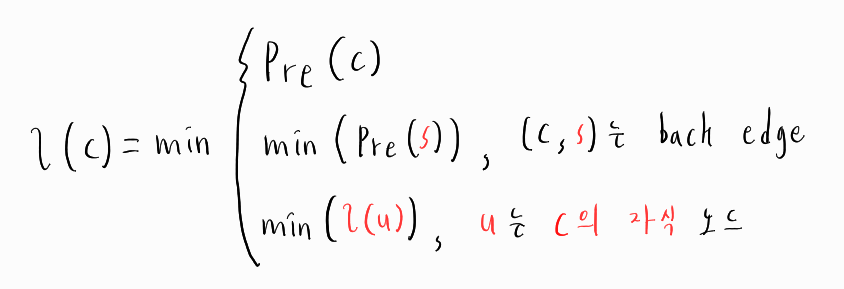 Pre(c)
l(c) = min { min(Pre(s)), (c,s)는 back edge
min(l(u)), u는 c의 자식 노드